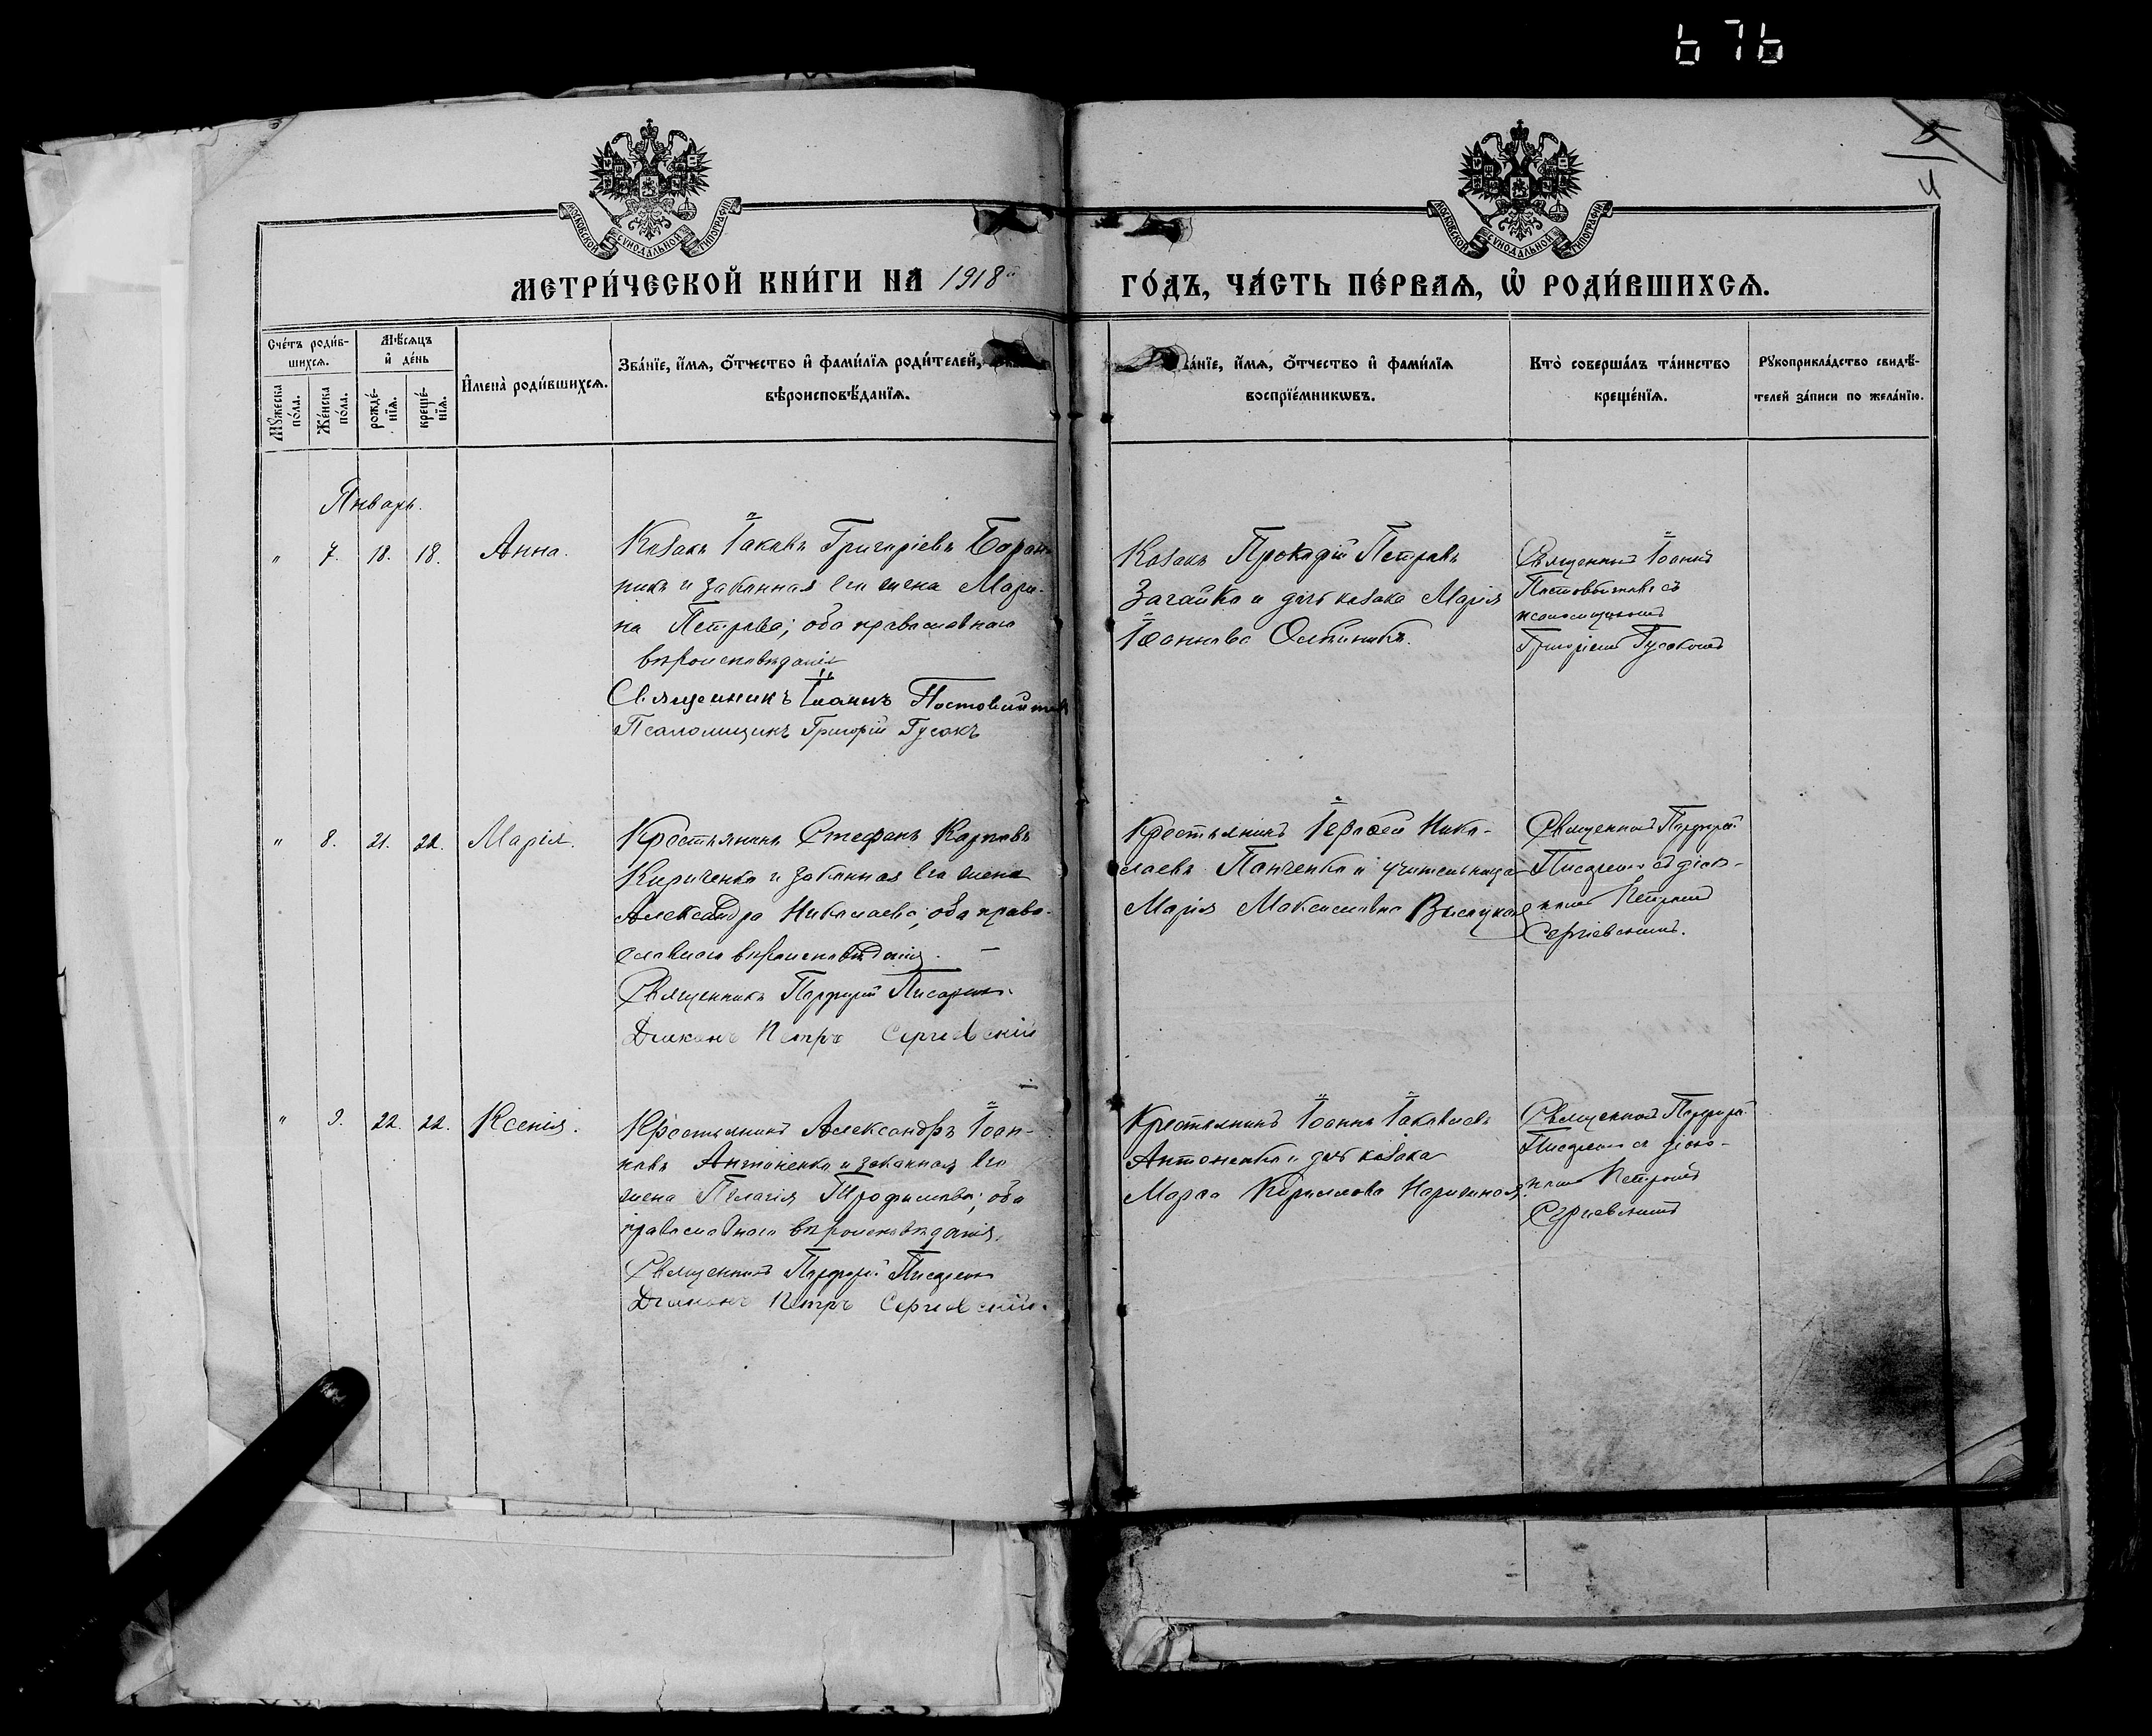 676
МОСКОВСКОЙ СѴНОДАЛЬНОЙ ТИПОГРАФІИ
МОСКОВСКОЙ СѴНОДАЛЬНОЙ ТИПОГРАФІИ
4
МЕТРИ́ЧЕСКОЙ КНИ́ГИ НА 1918 ГО́ДЪ, ЧА́СТЬ ПЕ́РВАЯ, Ѡ҆ РОДИ́ВШИХСЯ.
Сче́тъ роди́в-
шихся.
Мꙋ́жеска по́ла.
Же́нска по́ла.
Мѣ́сяцъ
и҆ де́нь
рожде́-
нїя.
креще́-
нїя.
И҆мена̀ роди́вшихся.
Зва́нїе, и҆́мя, ѻ҆́тчество и҆ фами́лїя роди́телей,
вѣроисповѣ́данїя.
а́нїе, и҆́мя, ѻ҆́тчество и҆ фами́лїя
воспрїе́мникѡвъ.
Кто̀ соверша́лъ та́инство
креще́нїя.
Рꙋкоприкла́дство свидѣ́-
телей за́писи по жела́нїю.
Январь.
" 7. 18. 18. Анна.
Козакъ Іаковъ Григоріевъ Баран-
никъ и законная его жена Мари-
на Петрова; оба православнаго
вѣроисповѣданія
Священникъ Іоаннъ Постовойтовъ
Псаломщикъ Григорій Гусакъ
Козакъ Прокофій Петровъ
Загайко и дочь козака Марія
Іоаннова
Священникъ Іоаннъ
Постовойтовъ съ
псаломщикомъ
Григоріемъ Гусакомъ
" 8. 21. 22. Марія.
Крестьянинъ Стефанъ Карповъ
Кириченко и законная его жена
Александра Николаева; оба право-
славнаго вѣроисповѣданія.
Священникъ Порфирій
Діаконъ Петръ Сергіевскій
Крестьянинъ Іерофей Нико-
лаевъ Панченко и учительница
Марія Максимовна Высоцкая
Священникъ Порфирій
съ діако-
номъ Петромъ
Сергіевскимъ.
" 9. 22. 22. Ксенія.
Крестьянинъ Александръ Іоан-
новъ Антоненко и законная его
жена Пелагія Трофимова; оба
православнаго вѣроисповѣданія.
Священникъ Порфирій
Діаконъ Петръ Сергіевскій.
Крестьянинъ Іоаннъ Іаковлевъ
Антоненко и дочь козака
Марѳа Кириллова
Священникъ Порфирій
съ діако-
номъ Петромъ
Сергіевскимъ